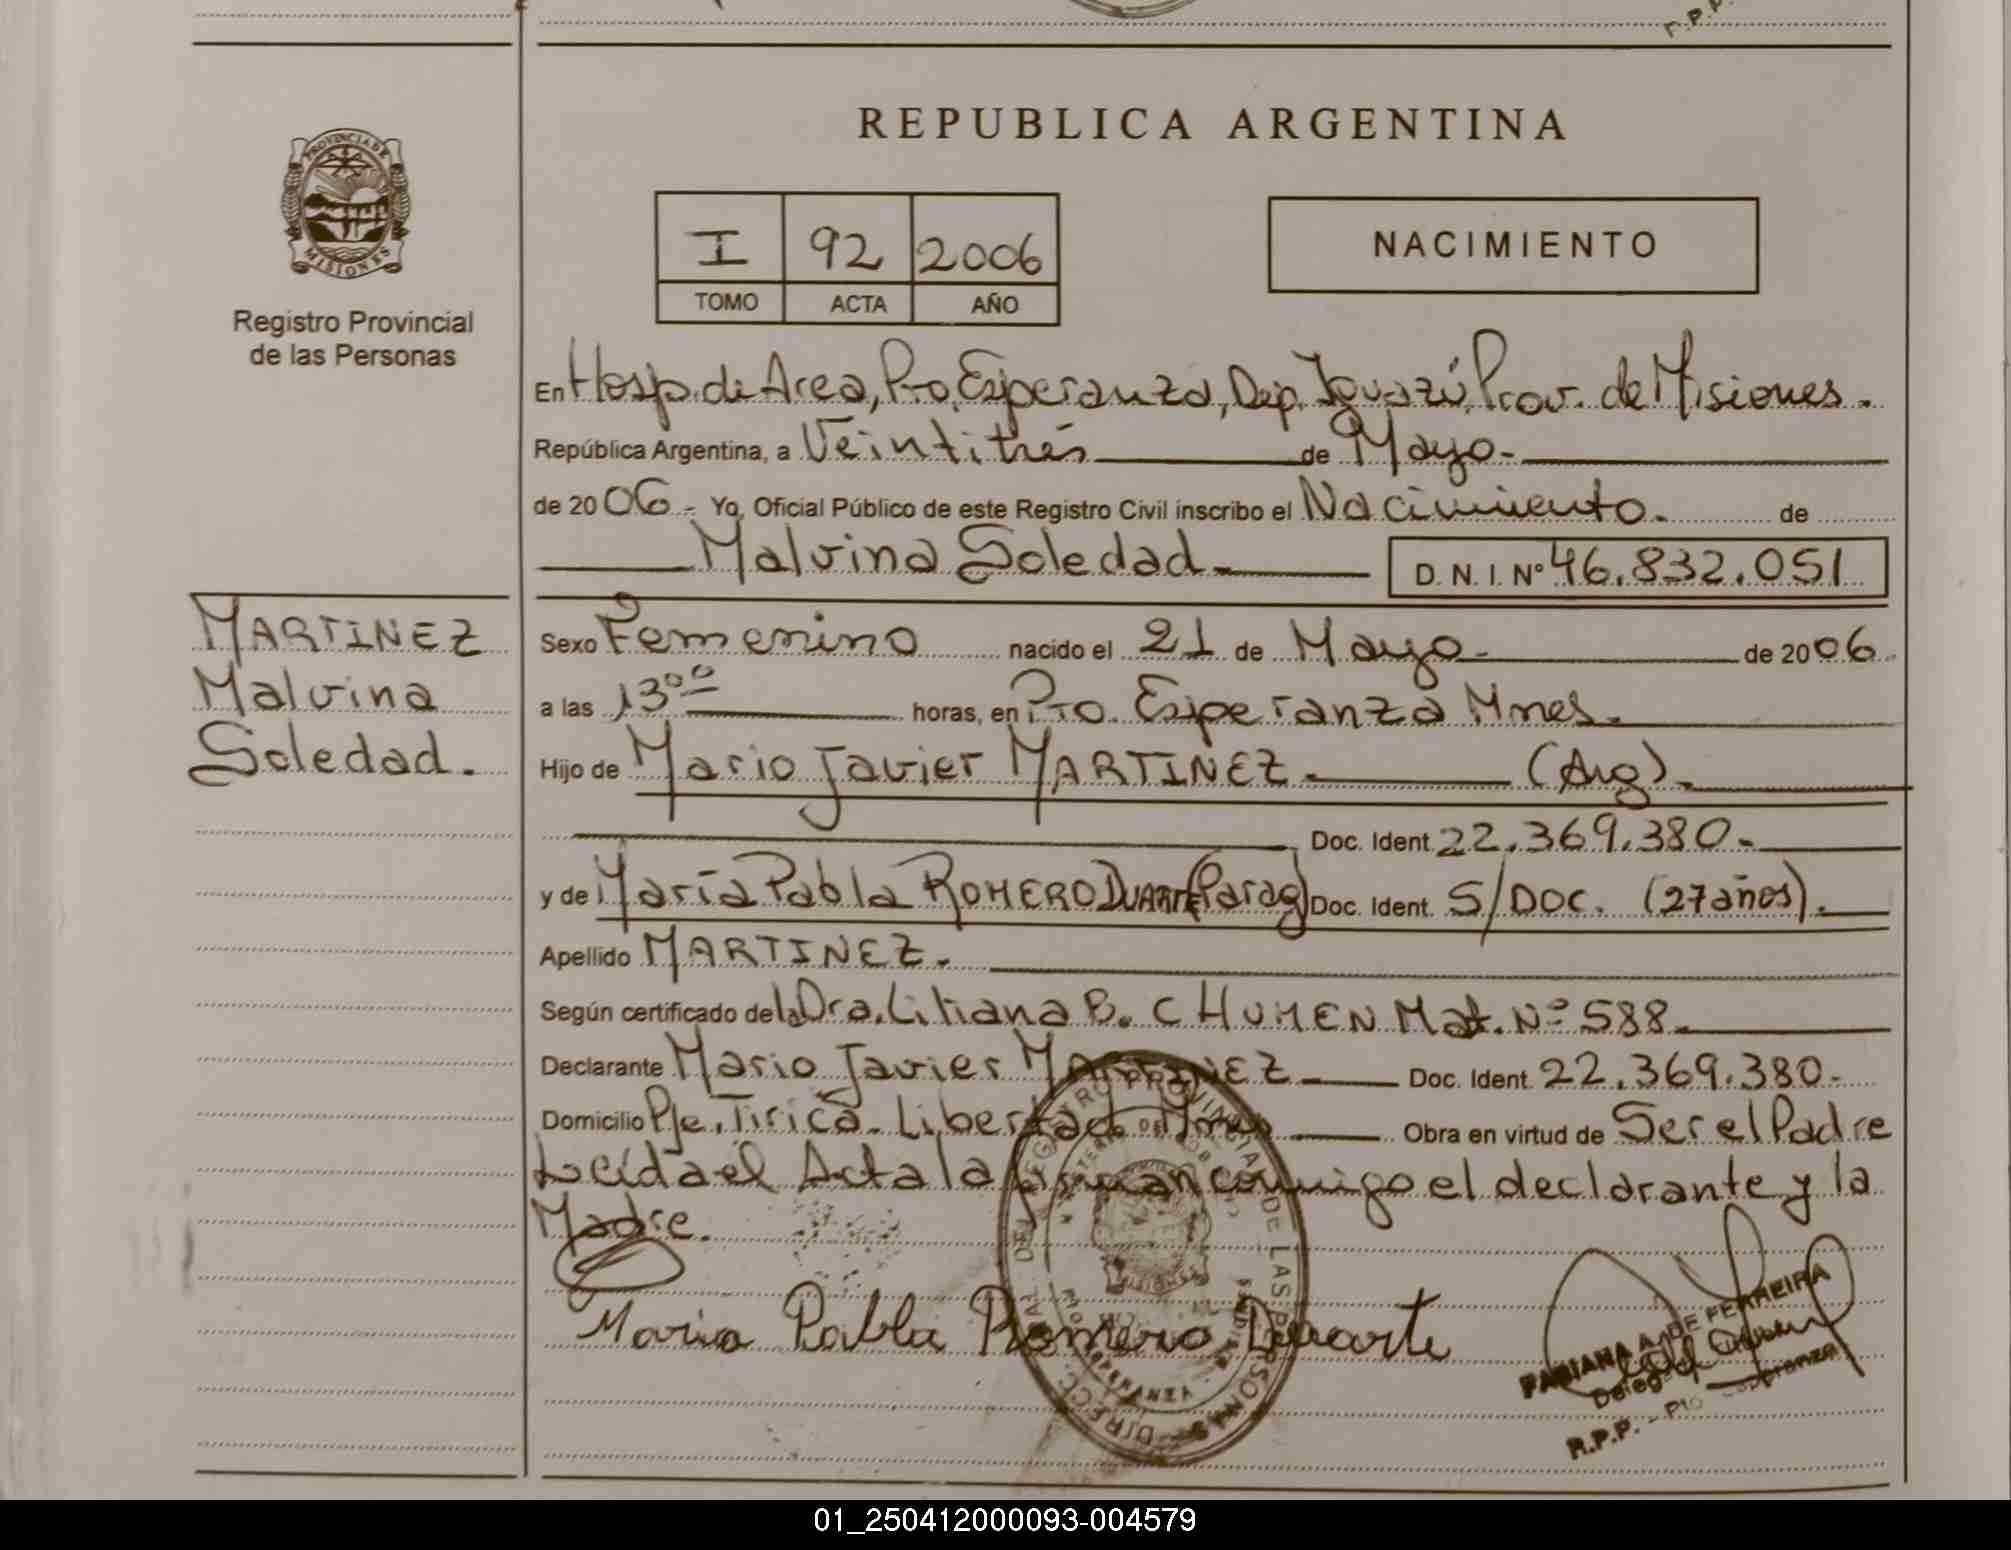 REPUBLICA ARGENTINA
PROVINCIA DE
MISIONES
Registro Provincial
de las Personas
I 92 2006
TOMO ACTA AÑO
NACIMIENTO
En Hosp. de Area, Pto. Esperanza, Dep. Iguazú, Prov. de Misiones.
República Argentina, a Veintitrés de Mayo.-
de 2006.- Yo, Oficial Público de este Registro Civil inscribo el Nacimiento. de
Malvina Soledad.- D. N. I. Nº 46.832.051
MARTINEZ
Malvina
Soledad.
Sexo Femenino nacido el 21 de Mayo.- de 2006
a las 13ºº horas, en Pto. Esperanza Mnes.
Hijo de Mario Javier MARTINEZ.- (Arg).-
Doc. Ident. 22.369.380.-
y de María Pabla ROMERO DUARTE (Parag) Doc. Ident. S/DOC. (27 años).
Apellido MARTINEZ.
Según certificado de la Dra. Liliana B. CHUMEN Mat. Nº 588.
Declarante Mario Javier MARTINEZ.- Doc. Ident. 22.369.380.-
Domicilio Pje. Tirica. Libertad Mnes Obra en virtud de Ser el Padre
Leída el Acta la firman conmigo el declarante y la
Madre.
Maria Pabla Romero Duarte
DIRECC. GRAL. DEL REGISTRO PROVINCIAL DE LAS PERSONAS
FABIANA A. DE FERREIRA
R.P.P. - Pto Esperanza
01_250412000093-004579